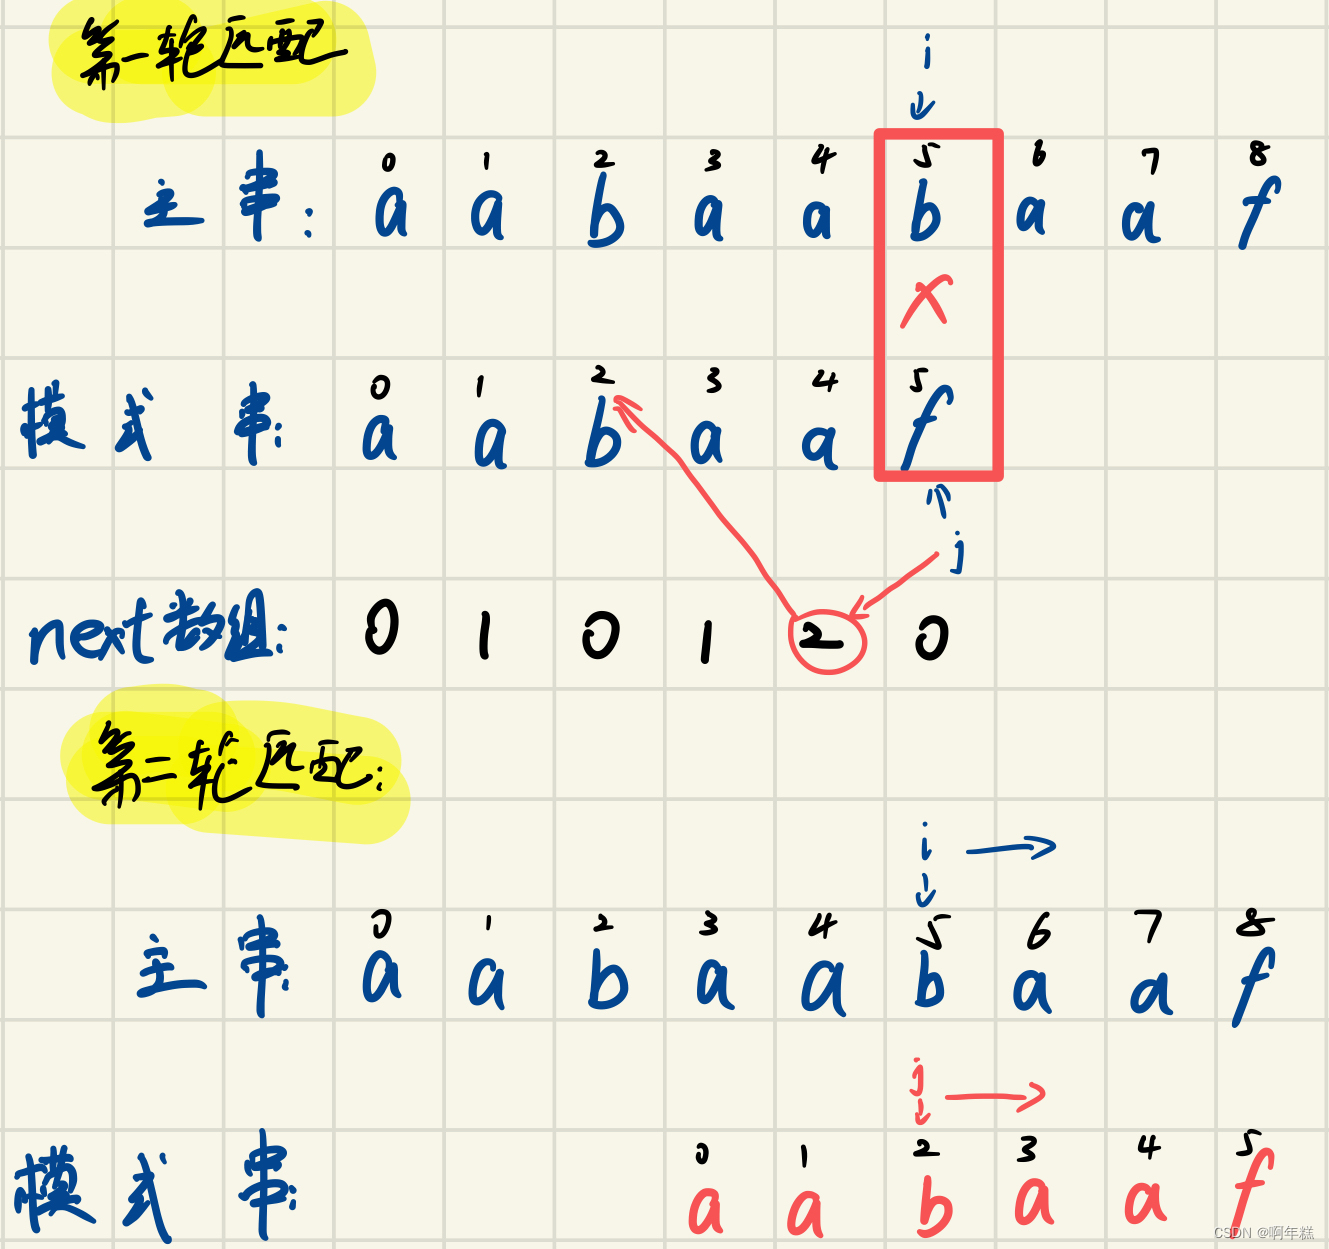 第一轮匹配
i
↓
0 1 2 3 4 5 6 7 8
主 串: a a b a a b a a f
×
0 1 2 3 4 5
模 式 串: a a b a a f
↑
j
next数组: 0 1 0 1 2 0
第二轮匹配:
i →
↓
0 1 2 3 4 5 6 7 8
主 串: a a b a a b a a f
j →
↓
0 1 2 3 4 5
模 式 串: a a b a a f
CSDN @啊年糕